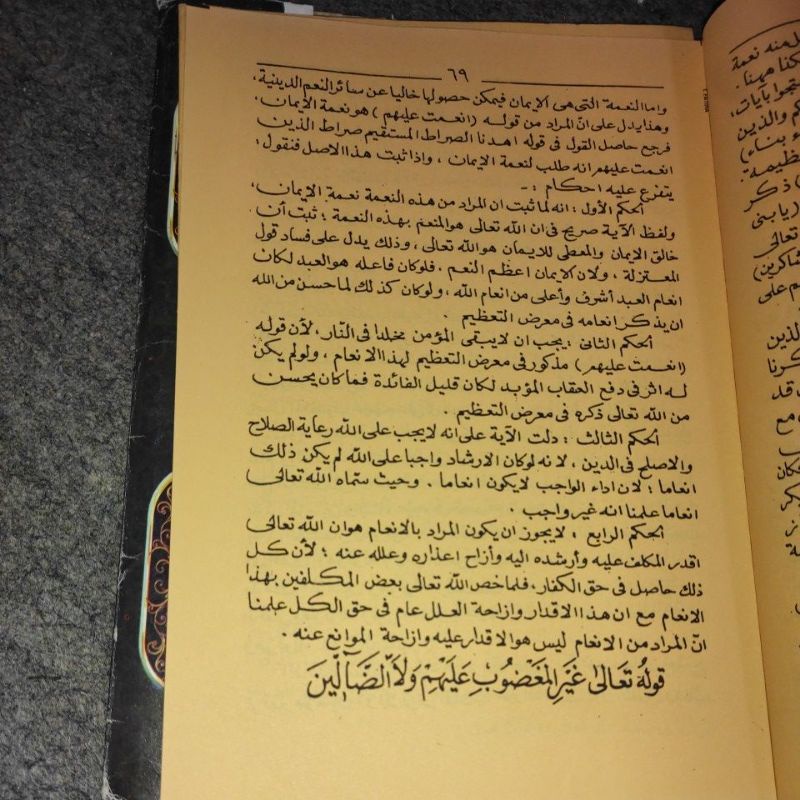 ٦٩
واما النعمة التى هى الايمان فيمكن حصولها خاليا عن سائر النعم الدينية،
وهذا يدل على انّ المراد من قوله (انعمت عليهم) هو نعمة الايمان،
فرجع حاصل القول فى قوله اهدنا الصراط المستقيم صراط الذين
انعمت عليهم انه طلب لنعمة الايمان ، واذا ثبت هذا الاصل فنقول؛
يتفرع عليه احكام :-
الحكم الأول : انه لما ثبت ان المراد من هذه النعمة نعمة الايمان،
ولفظ الآية صريح فى ان الله تعالى هو المنعم بهذه النعمة ؛ ثبت أن
خالق الايمان والمعطى للايمان هو الله تعالى ، وذلك يدل على فساد قول
المعتزلة ، ولان الايمان اعظم النعم . فلو كان فاعله هو العبد لكان
انعام العبد أشرف وأعلى من انعام الله ، ولو كان كذلك لما حسن من الله
ان يذكر انعامه فى معرض التعظيم .
الحكم الثانى : يجب ان لا يبقى المؤمن مخلدا فى النّار، لأن قوله
(انعمت عليهم) مذكور فى معرض التعظيم لهذا الانعام ، ولو لم يكن
له اثر فى دفع العقاب المؤبد لكان قليل الفائدة فما كان يحسن
من الله تعالى ذكره فى معرض التعظيم .
الحكم الثالث : دلت الآية على انه لا يجب على الله رعاية الصلاح
والاصلح فى الدين ، لانه لو كان الارشاد واجبا على الله لم يكن ذلك
انعاما ؛ لان اداء الواجب لا يكون انعاما . وحيث سماه الله تعالى
انعاما علمنا انه غير واجب .
الحكم الرابع : لا يجوز ان يكون المراد بالانعام هو ان الله تعالى
اقدر المكلف عليه وأرشده اليه وأزاح اعذاره وعلله عنه ؛ لأن كل
ذلك حاصل فى حق الكفار، فلما خص الله تعالى بعض المكلفين بهذا
الانعام مع ان هذا الاقدار وازاحة العلل عام فى حق الكل علمنا
انّ المراد من الانعام ليس هو الاقدار عليه وازاحة الموانع عنه .
قولهُ تَعَالىٰ غَيْرِ الْمَغْضُوبِ عَلَيْهِمْ وَلاَ الضَّآلِّينَ